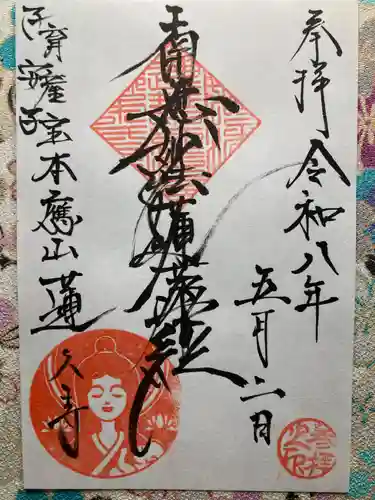 奉拝
令和八年
五月二日
南無妙法蓮華経
子育安産子宝
本應山
蓮久寺